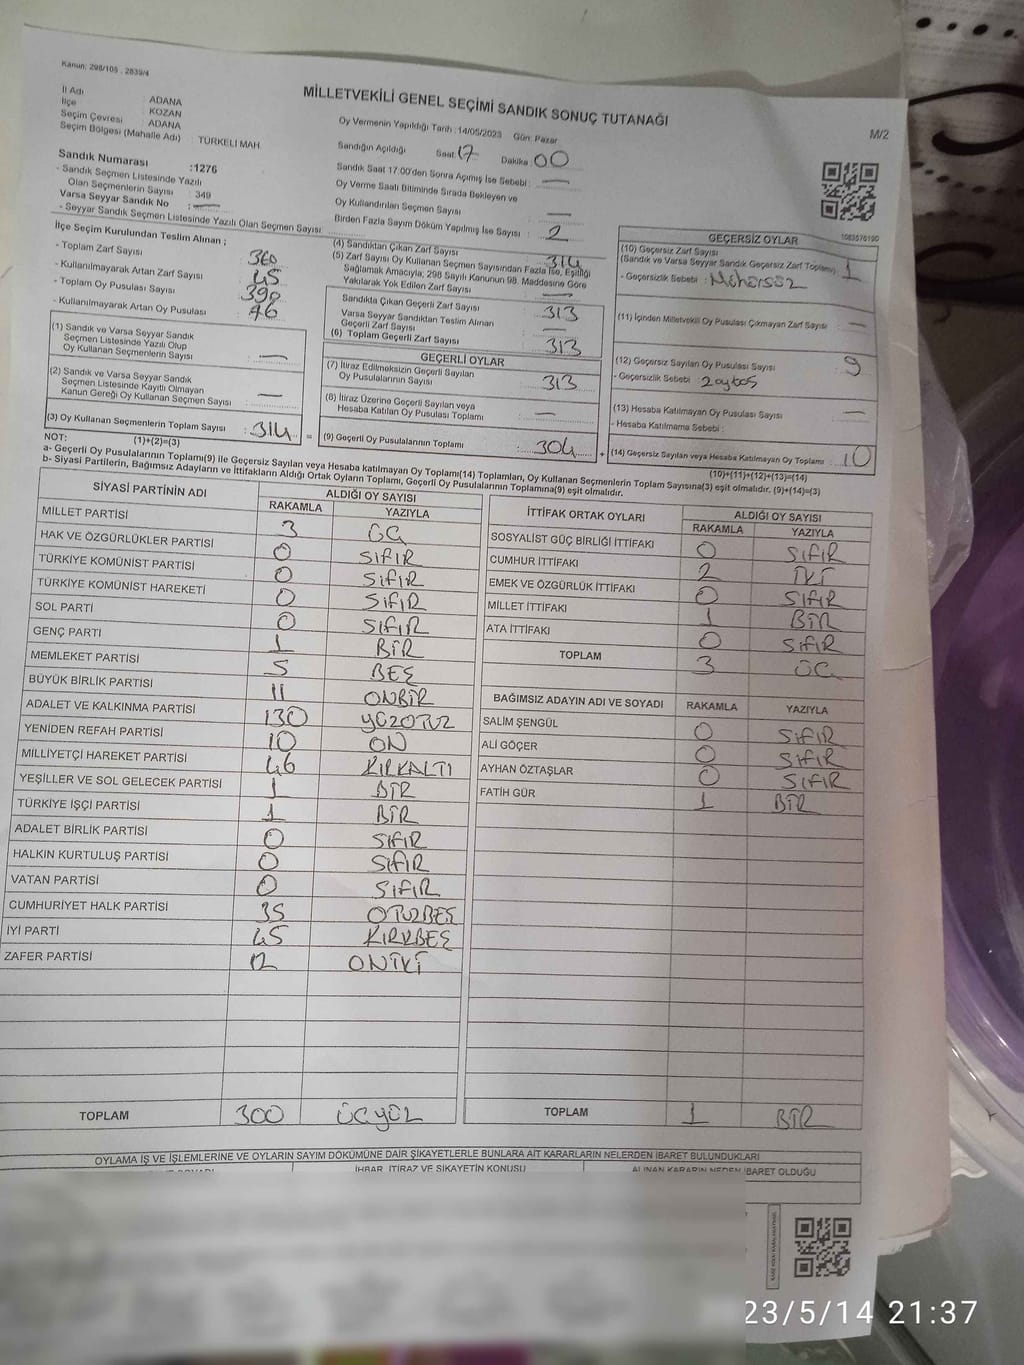 Kanun: 298/105 , 2839/4
MİLLETVEKİLİ GENEL SEÇİMİ SANDIK SONUÇ TUTANAĞI
M/2
İl Adı : ADANA
İlçe : KOZAN
Seçim Çevresi : ADANA
Seçim Bölgesi (Mahalle Adı) : TÜRKELİ MAH.
Sandık Numarası :1276
- Sandık Seçmen Listesinde Yazılı
Olan Seçmenlerin Sayısı : 349
Varsa Seyyar Sandık No : —
- Seyyar Sandık Seçmen Listesinde Yazılı Olan Seçmen Sayısı
Oy Vermenin Yapıldığı Tarih :14/05/2023 Gün: Pazar
Sandığın Açıldığı Saat: 17 Dakika : 00
Sandık Saat 17.00'den Sonra Açılmış İse Sebebi : —
Oy Verme Saati Bitiminde Sırada Bekleyen ve
Oy Kullandırılan Seçmen Sayısı —
Birden Fazla Sayım Döküm Yapılmış İse Sayısı : 2
1083576190
İlçe Seçim Kurulundan Teslim Alınan ;
- Toplam Zarf Sayısı 360
- Kullanılmayarak Artan Zarf Sayısı 45
- Toplam Oy Pusulası Sayısı 390
- Kullanılmayarak Artan Oy Pusulası 76
(1) Sandık ve Varsa Seyyar Sandık
Seçmen Listesinde Yazılı Olup
Oy Kullanan Seçmenlerin Sayısı —
(2) Sandık ve Varsa Seyyar Sandık
Seçmen Listesinde Kayıtlı Olmayan
Kanun Gereği Oy Kullanan Seçmen Sayısı —
(3) Oy Kullanan Seçmenlerin Toplam Sayısı : 314 =
(1)+(2)=(3)
(4) Sandıktan Çıkan Zarf Sayısı 314
(5) Zarf Sayısı Oy Kullanan Seçmen Sayısından Fazla İse, Eşitliği
Sağlamak Amacıyla; 298 Sayılı Kanunun 98. Maddesine Göre
Yakılarak Yok Edilen Zarf Sayısı —
Sandıkta Çıkan Geçerli Zarf Sayısı 313
Varsa Seyyar Sandıktan Teslim Alınan
Geçerli Zarf Sayısı —
(6) Toplam Geçerli Zarf Sayısı 313
GEÇERLİ OYLAR
(7) İtiraz Edilmeksizin Geçerli Sayılan
Oy Pusulalarının Sayısı 313
(8) İtiraz Üzerine Geçerli Sayılan veya
Hesaba Katılan Oy Pusulası Toplamı —
(9) Geçerli Oy Pusulalarının Toplamı 304 +
GEÇERSİZ OYLAR
(10) Geçersiz Zarf Sayısı
(Sandık ve Varsa Seyyar Sandık Geçersiz Zarf Toplamı) 1
- Geçersizlik Sebebi : Mühürsüz
(11) İçinden Milletvekili Oy Pusulası Çıkmayan Zarf Sayısı —
(12) Geçersiz Sayılan Oy Pusulası Sayısı 9
- Geçersizlik Sebebi :
(13) Hesaba Katılmayan Oy Pusulası Sayısı —
- Hesaba Katılmama Sebebi :
(14) Geçersiz Sayılan veya Hesaba Katılmayan Oy Toplamı : 10
(10)+(11)+(12)+(13)=(14)
NOT:
a- Geçerli Oy Pusulalarının Toplamı(9) ile Geçersiz Sayılan veya Hesaba katılmayan Oy Toplamı(14) Toplamları, Oy Kullanan Seçmenlerin Toplam Sayısına(3) eşit olmalıdır, (9)+(14)=(3)
b- Siyasi Partilerin, Bağımsız Adayların ve İttifakların Aldığı Ortak Oyların Toplamı, Geçerli Oy Pusulalarının Toplamına(9) eşit olmalıdır.
SİYASİ PARTİNİN ADI ALDIĞI OY SAYISI
RAKAMLA YAZIYLA
MİLLET PARTİSİ 3 ÜÇ
HAK VE ÖZGÜRLÜKLER PARTİSİ 0 SIFIR
TÜRKİYE KOMÜNİST PARTİSİ 0 SIFIR
TÜRKİYE KOMÜNİST HAREKETİ 0 SIFIR
SOL PARTİ 0 SIFIR
GENÇ PARTİ 1 BİR
MEMLEKET PARTİSİ 5 BEŞ
BÜYÜK BİRLİK PARTİSİ 11 ONBİR
ADALET VE KALKINMA PARTİSİ 130 YÜZOTUZ
YENİDEN REFAH PARTİSİ 10 ON
MİLLİYETÇİ HAREKET PARTİSİ 46 KIRKALTI
YEŞİLLER VE SOL GELECEK PARTİSİ 1 BİR
TÜRKİYE İŞÇİ PARTİSİ 1 BİR
ADALET BİRLİK PARTİSİ 0 SIFIR
HALKIN KURTULUŞ PARTİSİ 0 SIFIR
VATAN PARTİSİ 0 SIFIR
CUMHURİYET HALK PARTİSİ 35 OTUZBEŞ
İYİ PARTİ 45 KIRKBEŞ
ZAFER PARTİSİ 12 ONİKİ
TOPLAM 300 ÜÇYÜZ
İTTİFAK ORTAK OYLARI ALDIĞI OY SAYISI
RAKAMLA YAZIYLA
SOSYALİST GÜÇ BİRLİĞİ İTTİFAKI 0 SIFIR
CUMHUR İTTİFAKI 2 İKİ
EMEK VE ÖZGÜRLÜK İTTİFAKI 0 SIFIR
MİLLET İTTİFAKI 1 BİR
ATA İTTİFAKI 0 SIFIR
TOPLAM 3 ÜÇ
BAĞIMSIZ ADAYIN ADI VE SOYADI RAKAMLA YAZIYLA
SALİM ŞENGÜL 0 SIFIR
ALİ GÖÇER 0 SIFIR
AYHAN ÖZTAŞLAR 0 SIFIR
FATİH GÜR 1 BİR
TOPLAM 1 BİR
OYLAMA İŞ VE İŞLEMLERİNE VE OYLARIN SAYIM DÖKÜMÜNE DAİR ŞİKAYETLERLE BUNLARA AİT KARARLARIN NELERDEN İBARET BULUNDUKLARI
İHBAR, İTİRAZ VE ŞİKAYETİN KONUSU ALINAN KARARIN NEDEN İBARET OLDUĞU
23/5/14 21:37